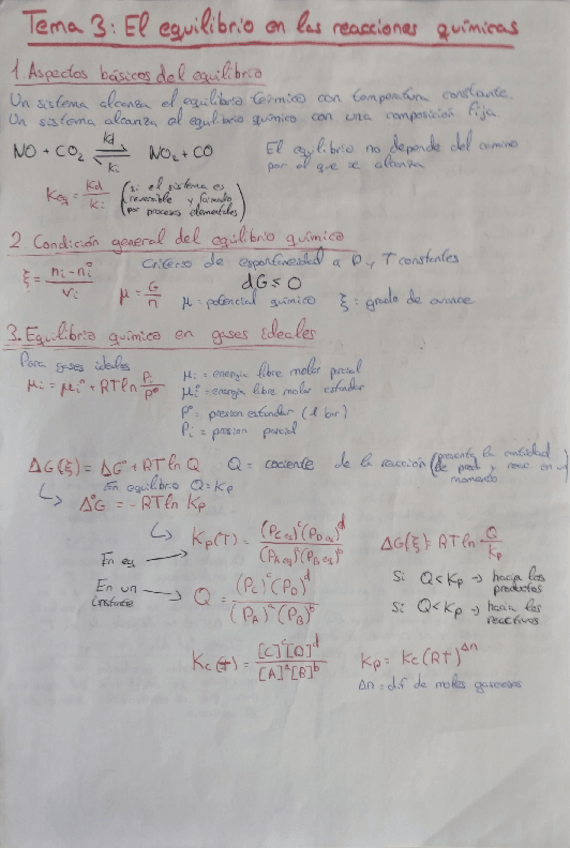 Tema 3: El equilibrio en las reacciones químicas
1. Aspectos básicos del equilibrio
Un sistema alcanza el equilibrio térmico con temperatura constante.
Un sistema alcanza el equilibrio químico con una composición fija.
NO + CO₂ ⇌ NO₂ + CO
kd
ki
El equilibrio no depende del camino
por el que se alcanza
Keq = kd/ki (si el sistema es
reversible y formado
por procesos elementales)
2 Condición general del equilibrio químico
ξ = (nᵢ - nᵢ°)/νᵢ
Criterio de espontaneidad a P y T constantes
dG ≤ 0
μ = G/n
μ: potencial químico ξ: grado de avance
3. Equilibrio químico en gases ideales
Para gases ideales
μᵢ = μᵢ° + RT ln Pᵢ/P°
μᵢ = energía libre molar parcial
μᵢ° = energía libre molar estándar
P° = presión estándar (1 bar)
Pᵢ = presión parcial
ΔG(ξ) = ΔG° + RT ln Q Q = cociente de la reacción (presenta la cantidad
de prod y reac en un
momento)
En equilibrio Q = Kp
↳ Δ°G = - RT ln Kp
↳ Kp(T) = (PC eq)ᶜ(PD eq)ᵈ/(PA eq)ᵃ(PB eq)ᵇ
En eq →
ΔG(ξ) = RT ln Q/Kp
Si Q < Kp → hacia los
productos
Si Q < Kp → hacia los
reactivos
En un
instante → Q = (PC)ᶜ(PD)ᵈ/(PA)ᵃ(PB)ᵇ
Kc(T) = [C]ᶜ[D]ᵈ/[A]ᵃ[B]ᵇ Kp = Kc(RT)^Δn
Δn = dif de moles gaseosos